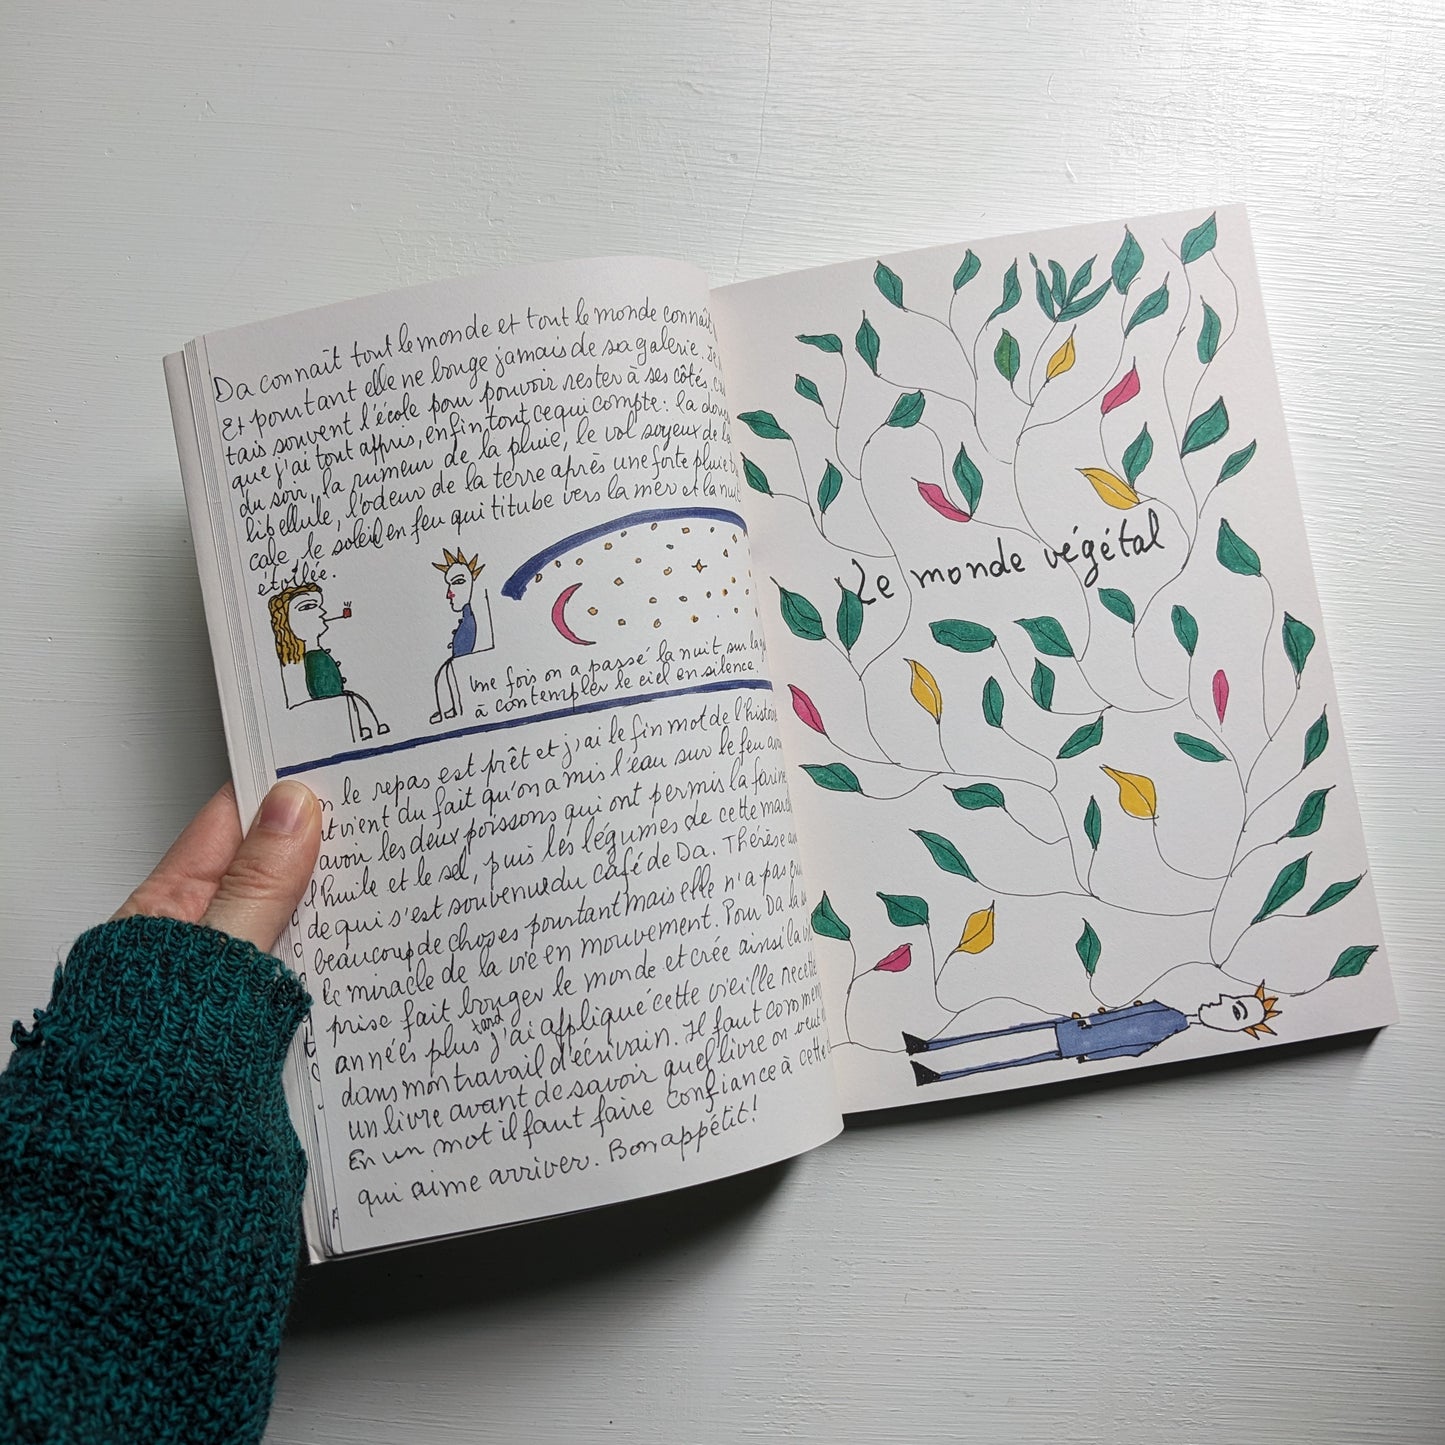 Da connaît tout le monde et tout le monde connaît
Et pourtant elle ne bouge jamais de sa galerie. Je
tais souvent l'école pour pouvoir rester à ses côtés. C'est
que j'ai tout appris, enfin tout ce qui compte : la
du soir, la rumeur de la pluie, le vol soyeux de la
libellule, l'odeur de la terre après une forte pluie
cale, le soleil en feu qui titube vers la mer et la nuit
étoilée.
Une fois on a passé la nuit sur la
à contempler le ciel en silence.
le repas est prêt et j'ai le fin mot de l'histoire
vient du fait qu'on a mis l'eau sur le feu
avoir les deux poissons qui ont permis la farine
l'huile et le sel, puis les légumes de cette
de qui s'est souvenue du café de Da. Thérèse
beaucoup de choses pourtant mais elle n'a pas
le miracle de la vie en mouvement. Pour Da la
prise fait bouger le monde et crée ainsi la
années plus tard j'ai appliqué cette vieille recette
dans mon travail d'écrivain. Il faut
un livre avant de savoir quel livre on veut
En un mot il faut faire confiance à cette
qui aime arriver. Bon appétit !
Le monde végétal